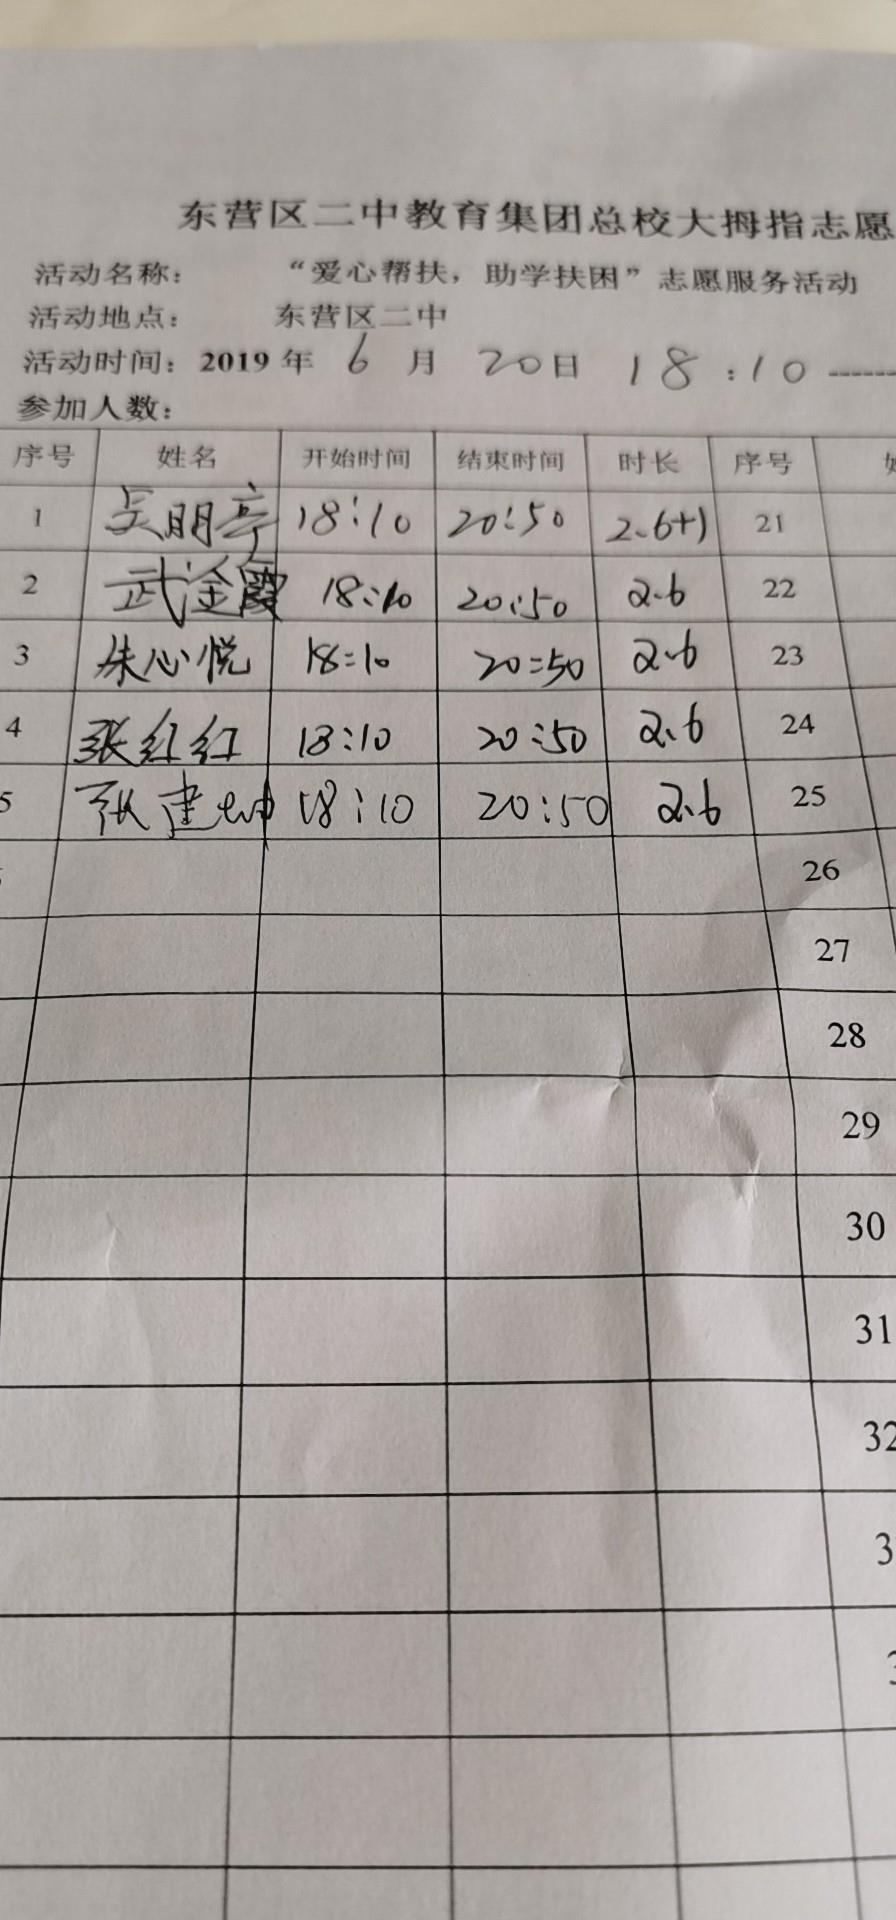 东营区二中教育集团总校大拇指志愿
活动名称： “爱心帮扶，助学扶困”志愿服务活动
活动地点： 东营区二中
活动时间：2019 年 6 月 20日 18:10------
参加人数：
序号 姓名 开始时间 结束时间 时长 序号
1 吴明亭 18:10 20:50 2.6+1 21
2 武金霞 18:10 20:50 2.6 22
3 朱心悦 18:10 20:50 2.6 23
4 张红红 18:10 20:50 2.6 24
5 张建坤 18:10 20:50 2.6 25
26
27
28
29
30
31
32